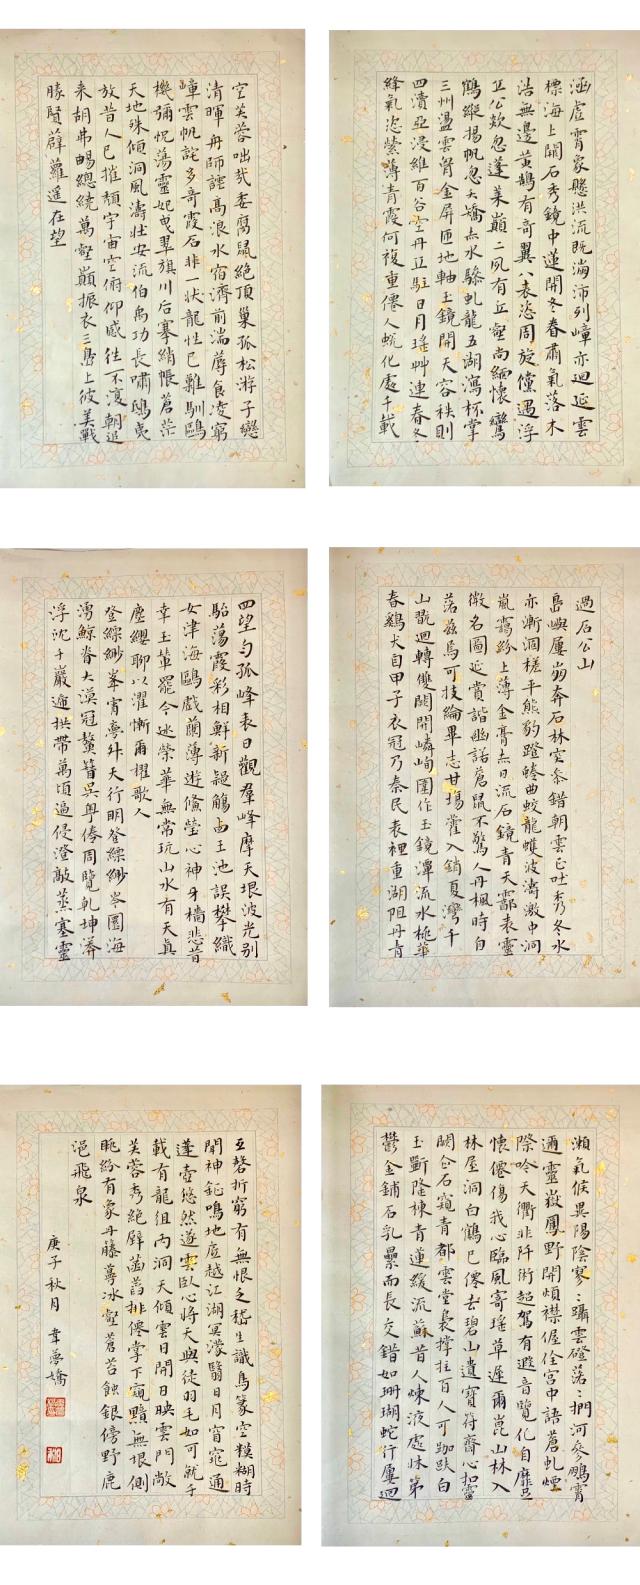 涵虛霄象懸洪流既滿沛列嶂亦迴延雲
標海上開石秀鏡中蓮開冬春肅氣落木
浩無邊黃鵠有奇翼八表恣周旋儻遇浮
丘公欻忽蓬萊巔二夙有丘壑尚緬懷鸞
鶴縱揚帆忽夭矯赤水驂虬龍五湖瀉杯掌
三州盪雲胷金屏匝地軸玉鏡開天容秩則
四瀆亞浸維百谷空丹丘駐日月瑤艸連春冬
絳氣恣縈薄青霞何複重僊人蛻化處千載
空芙蓉咄哉委腐鼠絕頂巢孤松游子戀
清暉舟師謹高浪水宿濟前湍蓐食凌窮
嶂雲帆詫多奇霞石非一狀龍性已難馴鷗
機彌怳蕩靈妃曳翠旗川后搴綃帳蒼茫
天地殊傾洞風濤壯安流伯禹功長嘯鴟夷
放昔人已摧頹宇宙空俯仰感往不復朝追
来胡弗暢總繞萬壑巔振衣三島上彼美戰
勝賢薜蘿遥在望
過石公山
島嶼屢崩奔石林空參錯朝雲已吐秀冬水
亦漸涸槎平熊豹蹬蜷曲蛟龍蠖波濤激中洞
嵐靄紛上薄金膏赤日流石鏡青天鄙表靈
徵名圖延賞諧幽諾蒼鼠不驚人丹楓時自
落茲焉可投綸畢志甘塲藿入銷夏灣千
山翫迴轉雙闕開嶙峋圍作玉鏡潭流水桃華
春鷄犬自甲子衣冠乃秦民表裡重湖阻丹青
四望勻孤峰表日觀羣峰摩天垠波光別
駘蕩霞彩相鮮新觴由王池誤攀織
女津海鷗戲蘭薄遊儵瑩心神身檣悲昔
幸玉輦罷今遊榮華無常玩山水有天真
塵纓聊以濯慚爾櫂歌人
登縹緲峯霄夢外天行明登縹緲岑圜海
湧鯨脊大漠冠鰲簪吳粵俸周覽乾坤莽
浮沈千巖遞拱帶萬頃逼侵澄敲蒸塞靈
瀨氣候異陽陰寥〻躡雲磴落〻捫河參鵬霄
邇靈嶽鳳野開煩襟偓佺宮中語蒼虬煙
際吟天衢非阡術超駕有遐音覽化自靡
懷僊傷我心臨風寄瑤草遲爾崑山林入
林屋洞白鶴已僊去碧山遺寶符齋心扣靈
闕白石窺青都雲堂長撑拄百人可跏趺白
玉斲隆棟青蓮緩流蘇昔人煉液處牀第
鬱金鋪石乳纍而長交錯如珊瑚蛇行屢迴
互磬折窮有無恨乏嵇生識鳥篆空糢糊時
聞神鉦鳴地底越江湖冥濛翳日月窅窕通
蓬壺悠然遂雲臥心將天與徒羽毛如可就千
載有龍組丙洞天傾雲日開日映雲門敞
芙蓉秀絕壁菡萏排僊掌下窺黯無垠側
眺紛有象丹藤蔓冰壑蒼苔蝕銀傍野鹿
浥飛泉
庚子秋月 韋夢嬌